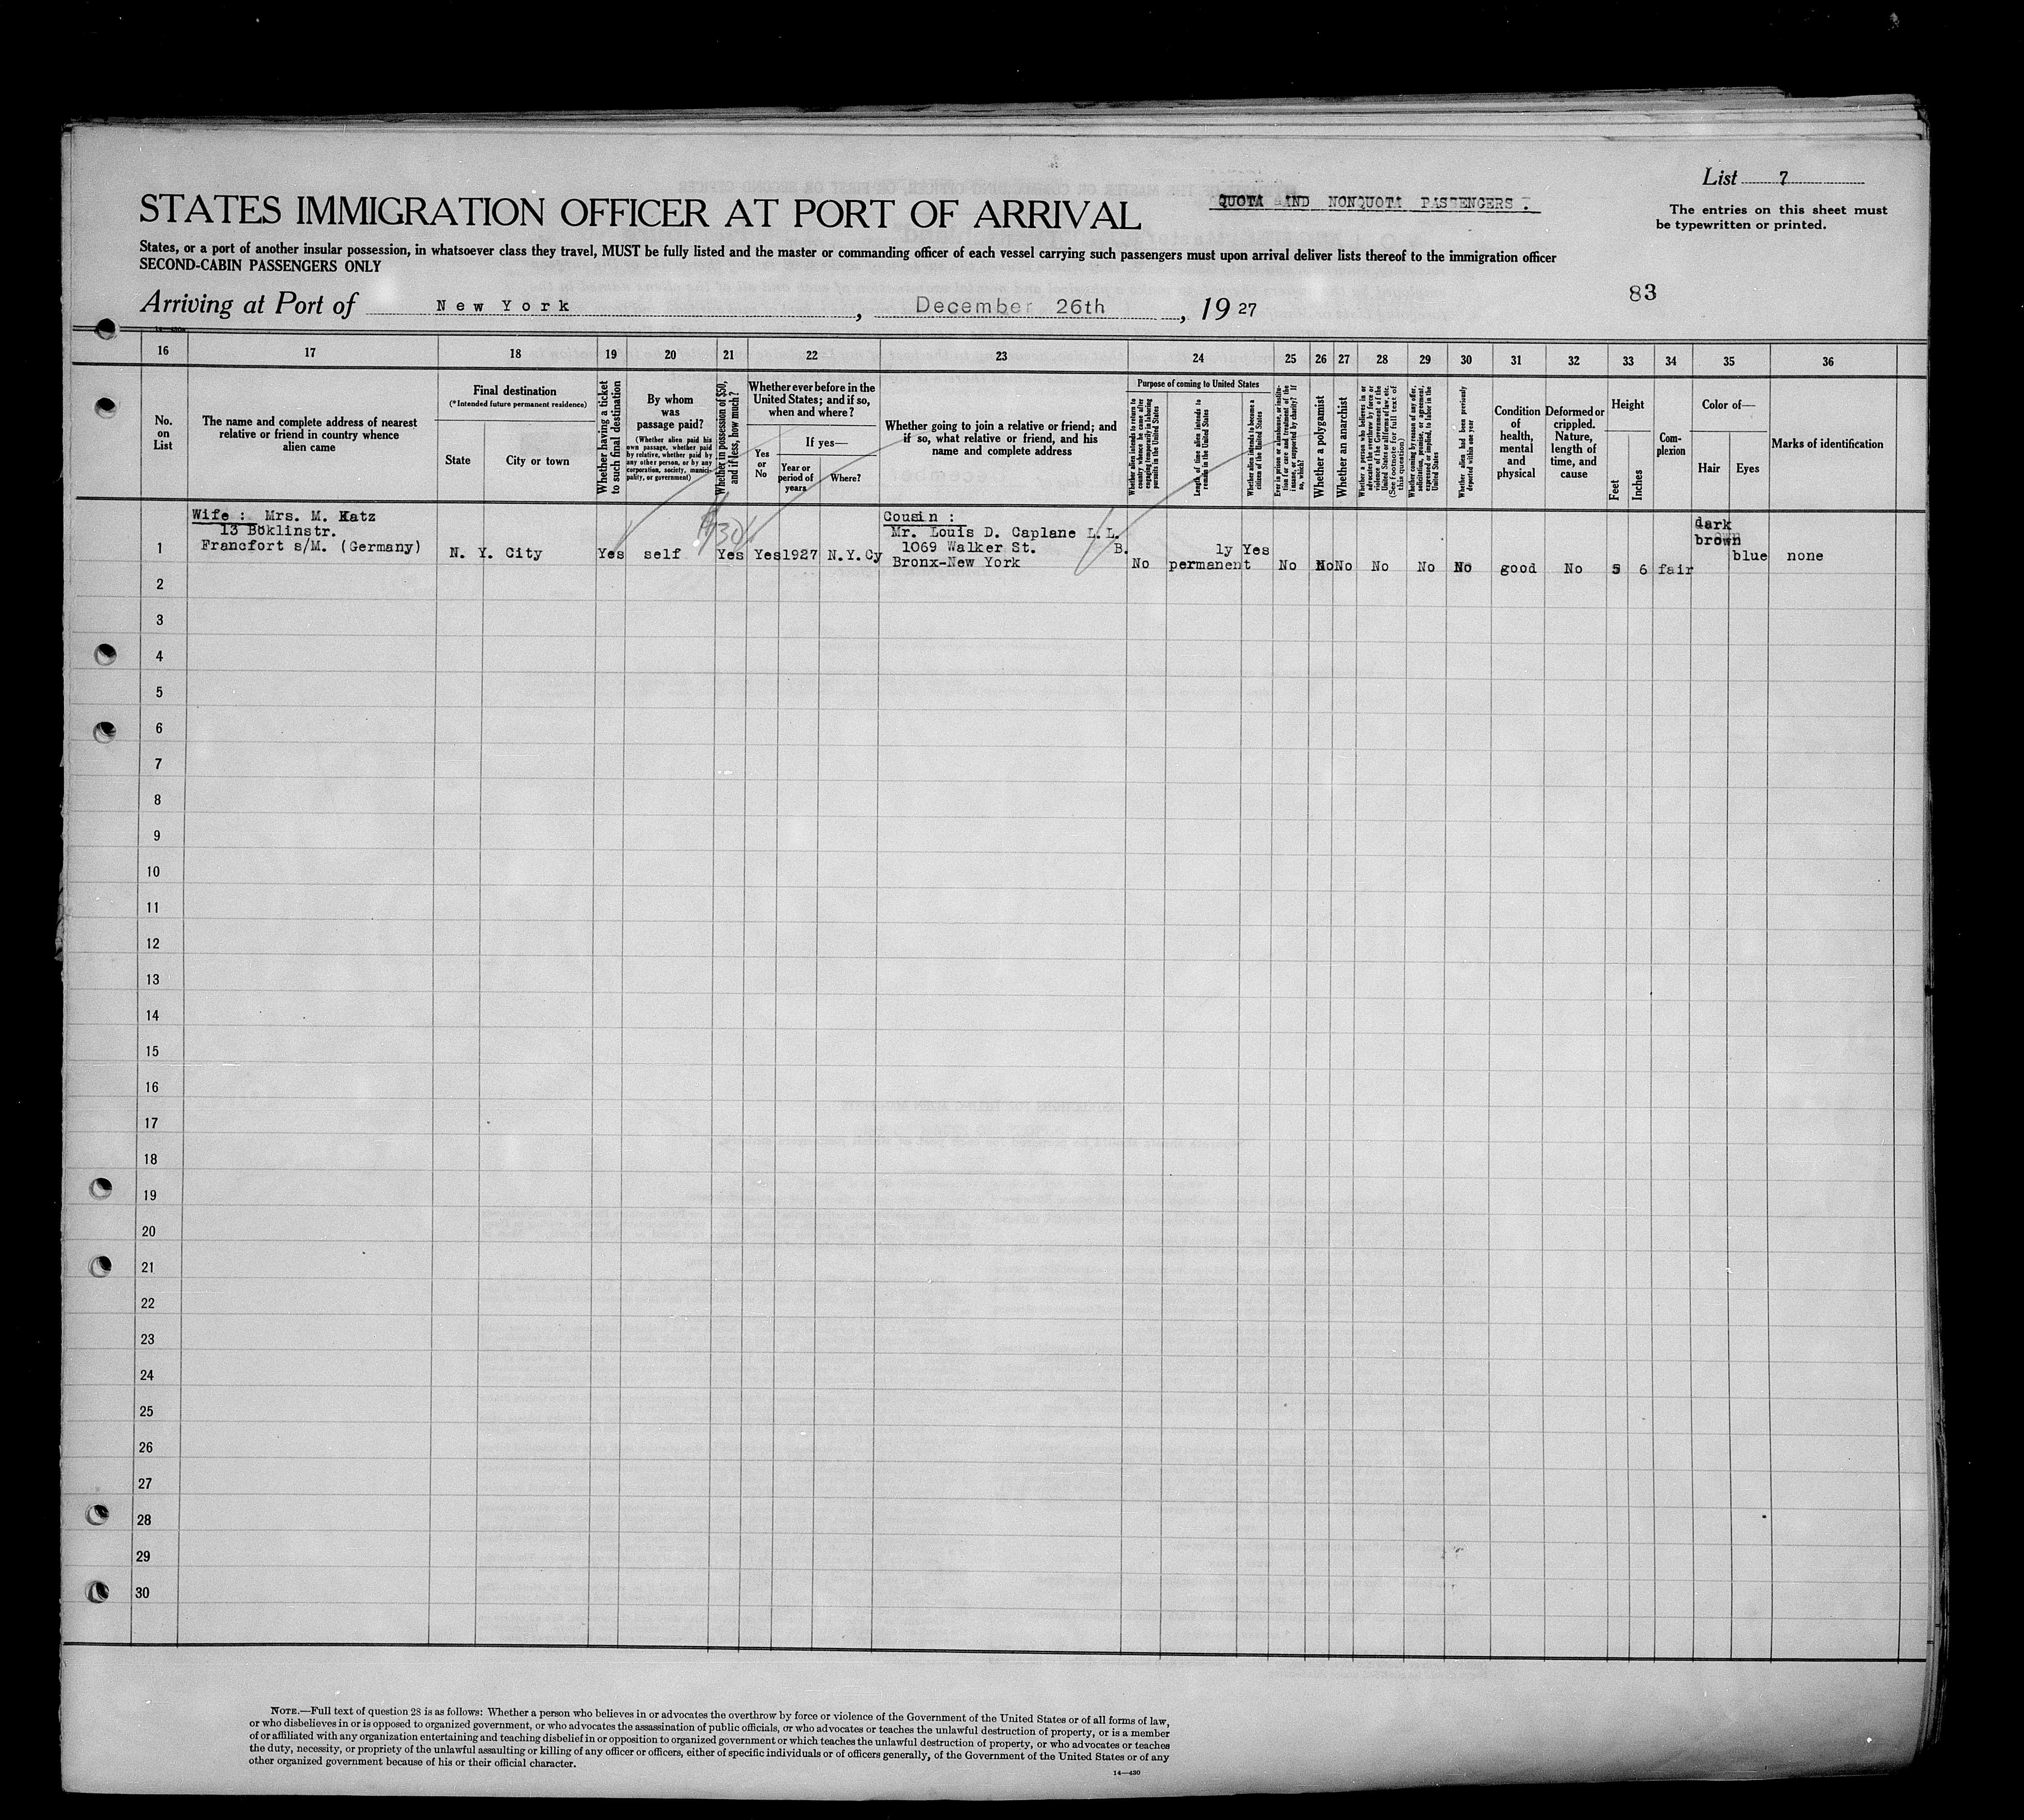 List 7
STATES IMMIGRATION OFFICER AT PORT OF ARRIVAL
QUOTA AND NONQUOTA PASSENGERS.
The entries on this sheet must
be typewritten or printed.
States, or a port of another insular possession, in whatsoever class they travel, MUST be fully listed and the master or commanding officer of each vessel carrying such passengers must upon arrival deliver lists thereof to the immigration officer
SECOND-CABIN PASSENGERS ONLY
83
Arriving at Port of New York, December 26th, 1927
16 17 18 19 20 21 22 23 24 25 26 27 28 29 30 31 32 33 34 35 36
No.
on
List
The name and complete address of nearest
relative or friend in country whence
alien came
Final destination
(*Intended future permanent residence)
State
City or town
Whether having a ticket
to such final destination
By whom
was
passage paid?
(Whether alien paid his
own passage, whether paid
by relative, whether paid by
any other person, or by any
corporation, society, munici-
pality, or government)
Whether in possession of $50,
and if less, how much?
Whether ever before in the
United States; and if so,
when and where?
Yes
or
No
If yes—
Year or
period of
years
Where?
Whether going to join a relative or friend; and
if so, what relative or friend, and his
name and complete address
Purpose of coming to United States
Whether alien intends to return to
country whence he came after
engaging temporarily in laboring
pursuits in the United States
Length of time alien intends to
remain in the United States
Whether alien intends to become a
citizen of the United States
Ever in prison or almshouse, or institu-
tion for care and treatment of the
insane, or supported by charity? If
so, which?
Whether a polygamist
Whether an anarchist
Whether a person who believes in or
advocates the overthrow by force or
violence of the Government of the
United States or all forms of law, etc.
(See footnote for full text of
this question)
Whether coming by reason of any offer,
solicitation, promise, or agreement,
expressed or implied, to labor in the
United States
Whether alien had been previously
deported within one year
Condition
of
health,
mental
and
physical
Deformed or
crippled.
Nature,
length of
time, and
cause
Height
Feet
Inches
Com-
plexion
Color of—
Hair
Eyes
Marks of identification
1
Wife : Mrs. M. Katz
13 Böklinstr.
Francfort s/M. (Germany)
N. Y. City
Yes
self
$30
Yes
Yes
1927
N.Y.Cy
Cousin :
Mr. Louis D. Caplane L.L.
B.
1069 Walker St.
Bronx-New York
No
ly
permanent
Yes
No
No
No
No
No
No
good
No
5
6
fair
dark
brown
blue
none
2
3
4
5
6
7
8
9
10
11
12
13
14
15
16
17
18
19
20
21
22
23
24
25
26
27
28
29
30
NOTE.—Full text of question 28 is as follows: Whether a person who believes in or advocates the overthrow by force or violence of the Government of the United States or of all forms of law,
or who disbelieves in or is opposed to organized government, or who advocates the assassination of public officials, or who advocates or teaches the unlawful destruction of property, or is a member
of or affiliated with any organization entertaining and teaching disbelief in or opposition to organized government or which teaches the unlawful destruction of property, or who advocates or teaches
the duty, necessity, or propriety of the unlawful assaulting or killing of any officer or officers, either of specific individuals or of officers generally, of the Government of the United States or of any
other organized government because of his or their official character.
14—430